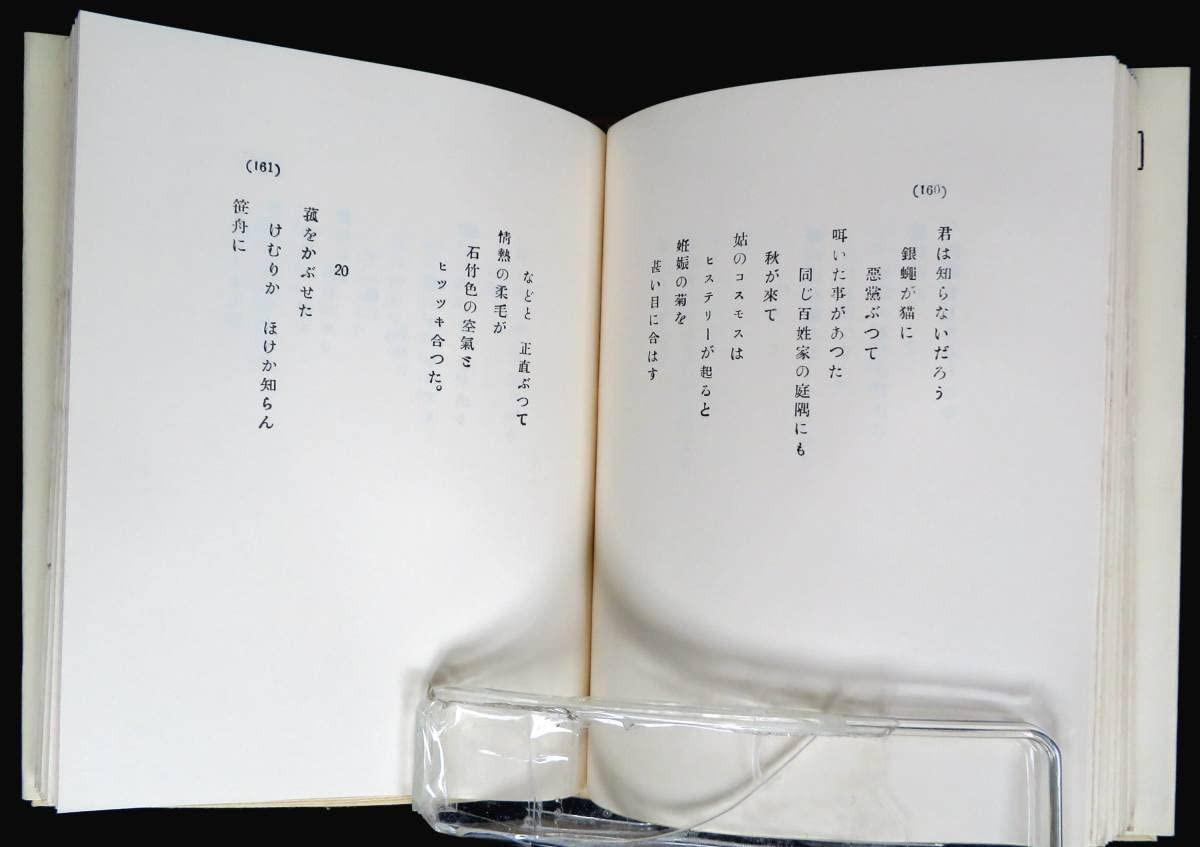 (160)
君は知らないだろう
銀蠅が猫に
惡黨ぶつて
咡いた事があつた
同じ百姓家の庭隅にも
秋が來て
姑のコスモスは
ヒステリーが起ると
姙娠の菊を
甚い目に合はす
(161)
などと 正直ぶつて
情熱の柔毛が
石竹色の空氣と
ヒツツキ合つた。
20
菰をかぶせた
けむりか ほけか知らん
笹舟に